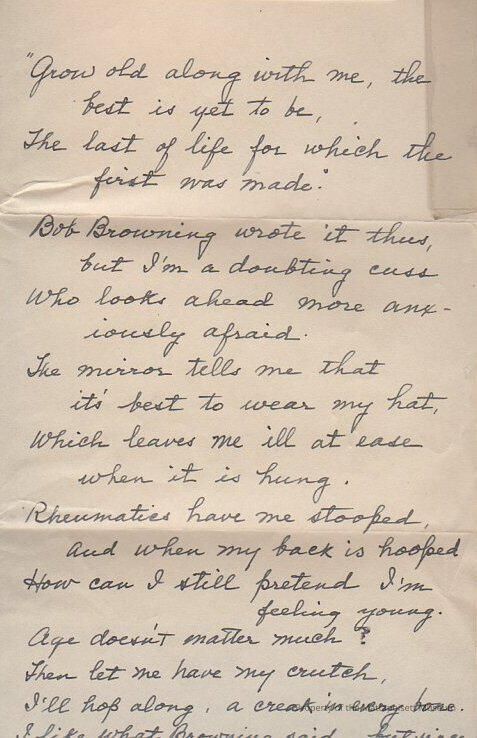 "Grow old along with me, the
best is yet to be,
The last of life for which the
first was made."
Bob Browning wrote it thus,
but I'm a doubting cuss
Who looks ahead more anx-
iously afraid.
The mirror tells me that
it's best to wear my hat,
Which leaves me ill at ease
when it is hung.
Rheumatics have me stooped,
and when my back is hooped
How can I still pretend I'm
feeling young.
Age doesn't matter much?
Then let me have my crutch,
I'll hop along, a creak in every bone.
I like what Browning said